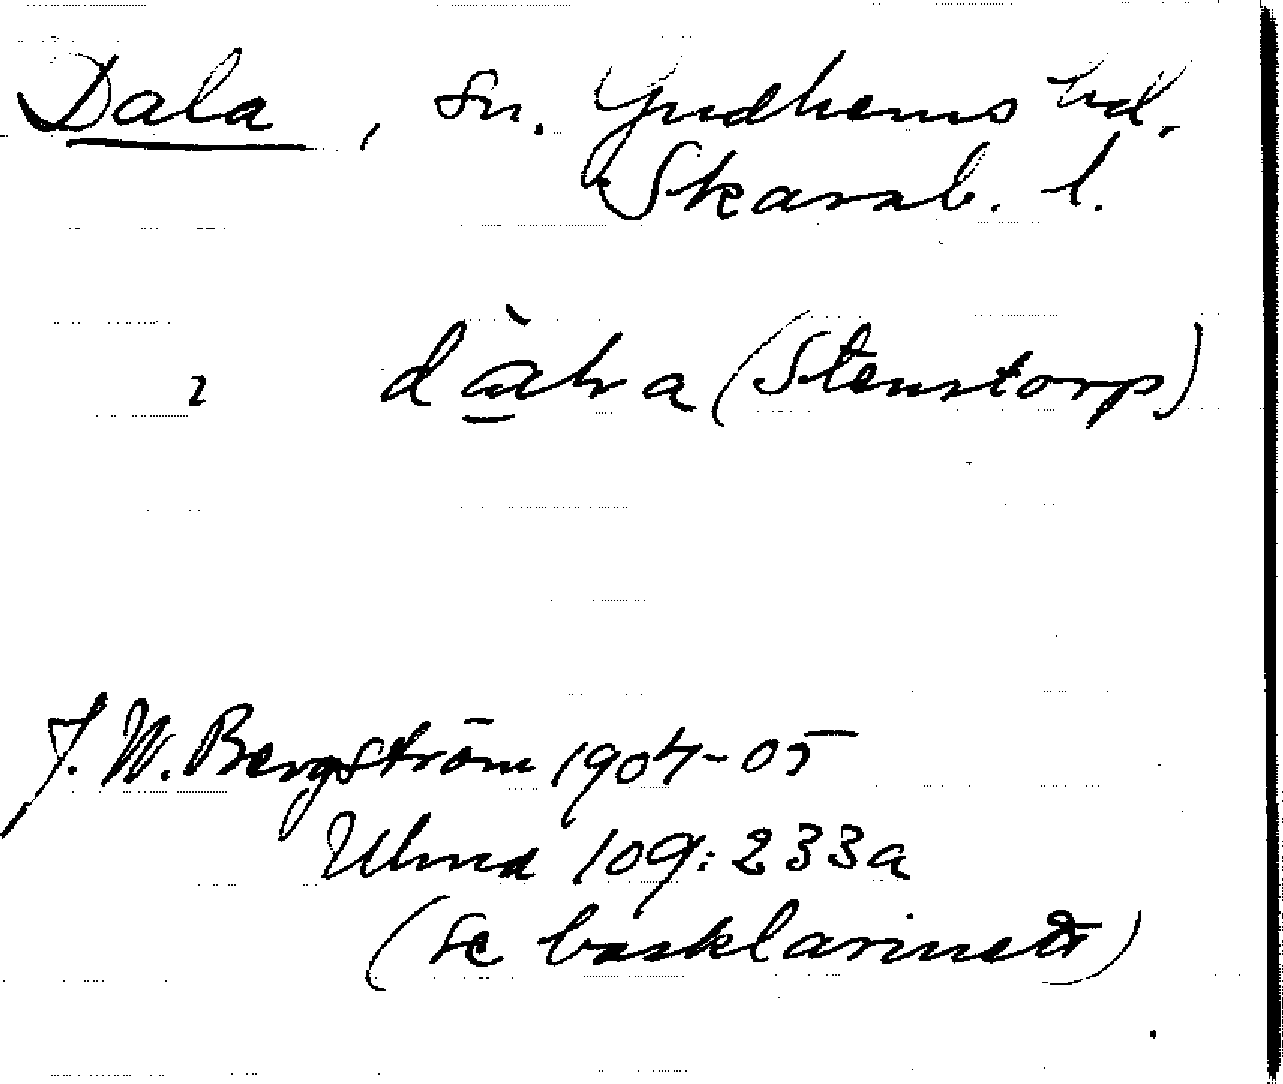 Dala, sn. Gudhems hd.
Skarab. l.
(Stenstorp)
J. W. Bergström 1904-05
Ulma 109:233a
(se basklarinett)